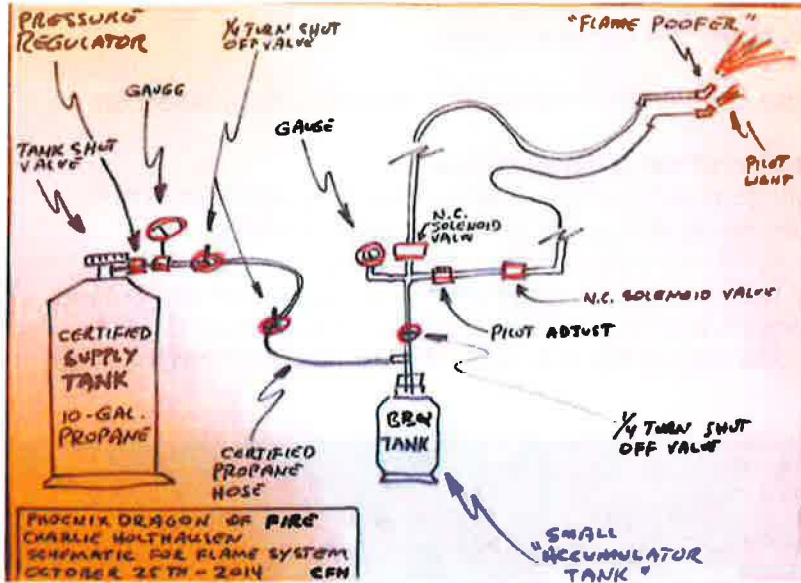 PRESSURE
REGULATOR
1/4 TURN SHUT
OFF VALVE
"FLAME POOFER"
GAUGG
GAUSE
TANK SHUT
VALVE
PILOT
LIGHT
N.C.
SOLENOID
VALV
N.C. SOLENOID VALVE
PILOT ADJUST
CERTIFIED
SUPPLY
TANK
10-GAL.
PROPANE
BBQ
TANK
1/4 TURN SHUT
OFF VALVE
CERTIFIED
PROPANE
HOSE
"SMALL
ACCUMULATOR
TANK"
PHOENIX DRAGON OF FIRE
CHARLIE HOLTHAUSEN
SCHEMATIC FOR FLAME SYSTEM
OCTOBER 25TH - 2014 CFH